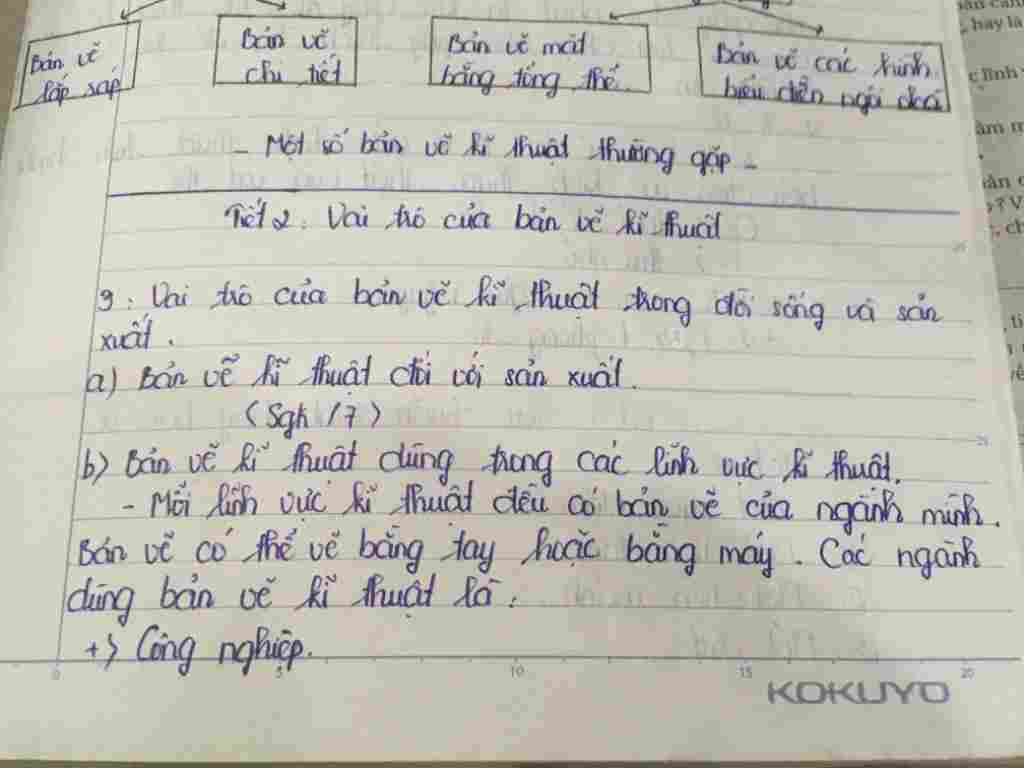 Bản vẽ lắp sáp
Bản vẽ chi tiết
Bản vẽ mặt bằng tổng thể.
Bản vẽ các hình biểu diễn ngôi nhà
- Một số bản vẽ kĩ thuật thường gặp -
Tiết 2: Vai trò của bản vẽ kĩ thuật
g: Vai trò của bản vẽ kĩ thuật trong đời sống và sản
xuất.
a) Bản vẽ kĩ thuật đối với sản xuất.
(Sgk /7)
b) Bản vẽ kĩ thuật dùng trong các lĩnh vực kĩ thuật.
- Mỗi lĩnh vực kĩ thuật đều có bản vẽ của ngành mình.
Bản vẽ có thể vẽ bằng tay hoặc bằng máy. Các ngành
dùng bản vẽ kĩ thuật là:
+) Công nghiệp.
0 5 10 15 20
KOKUYO